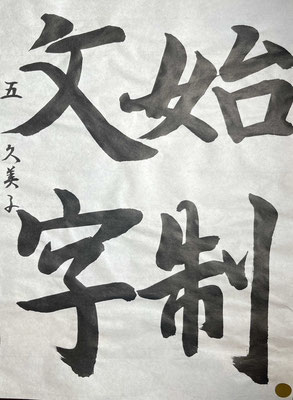 始制
文字
五 久美子